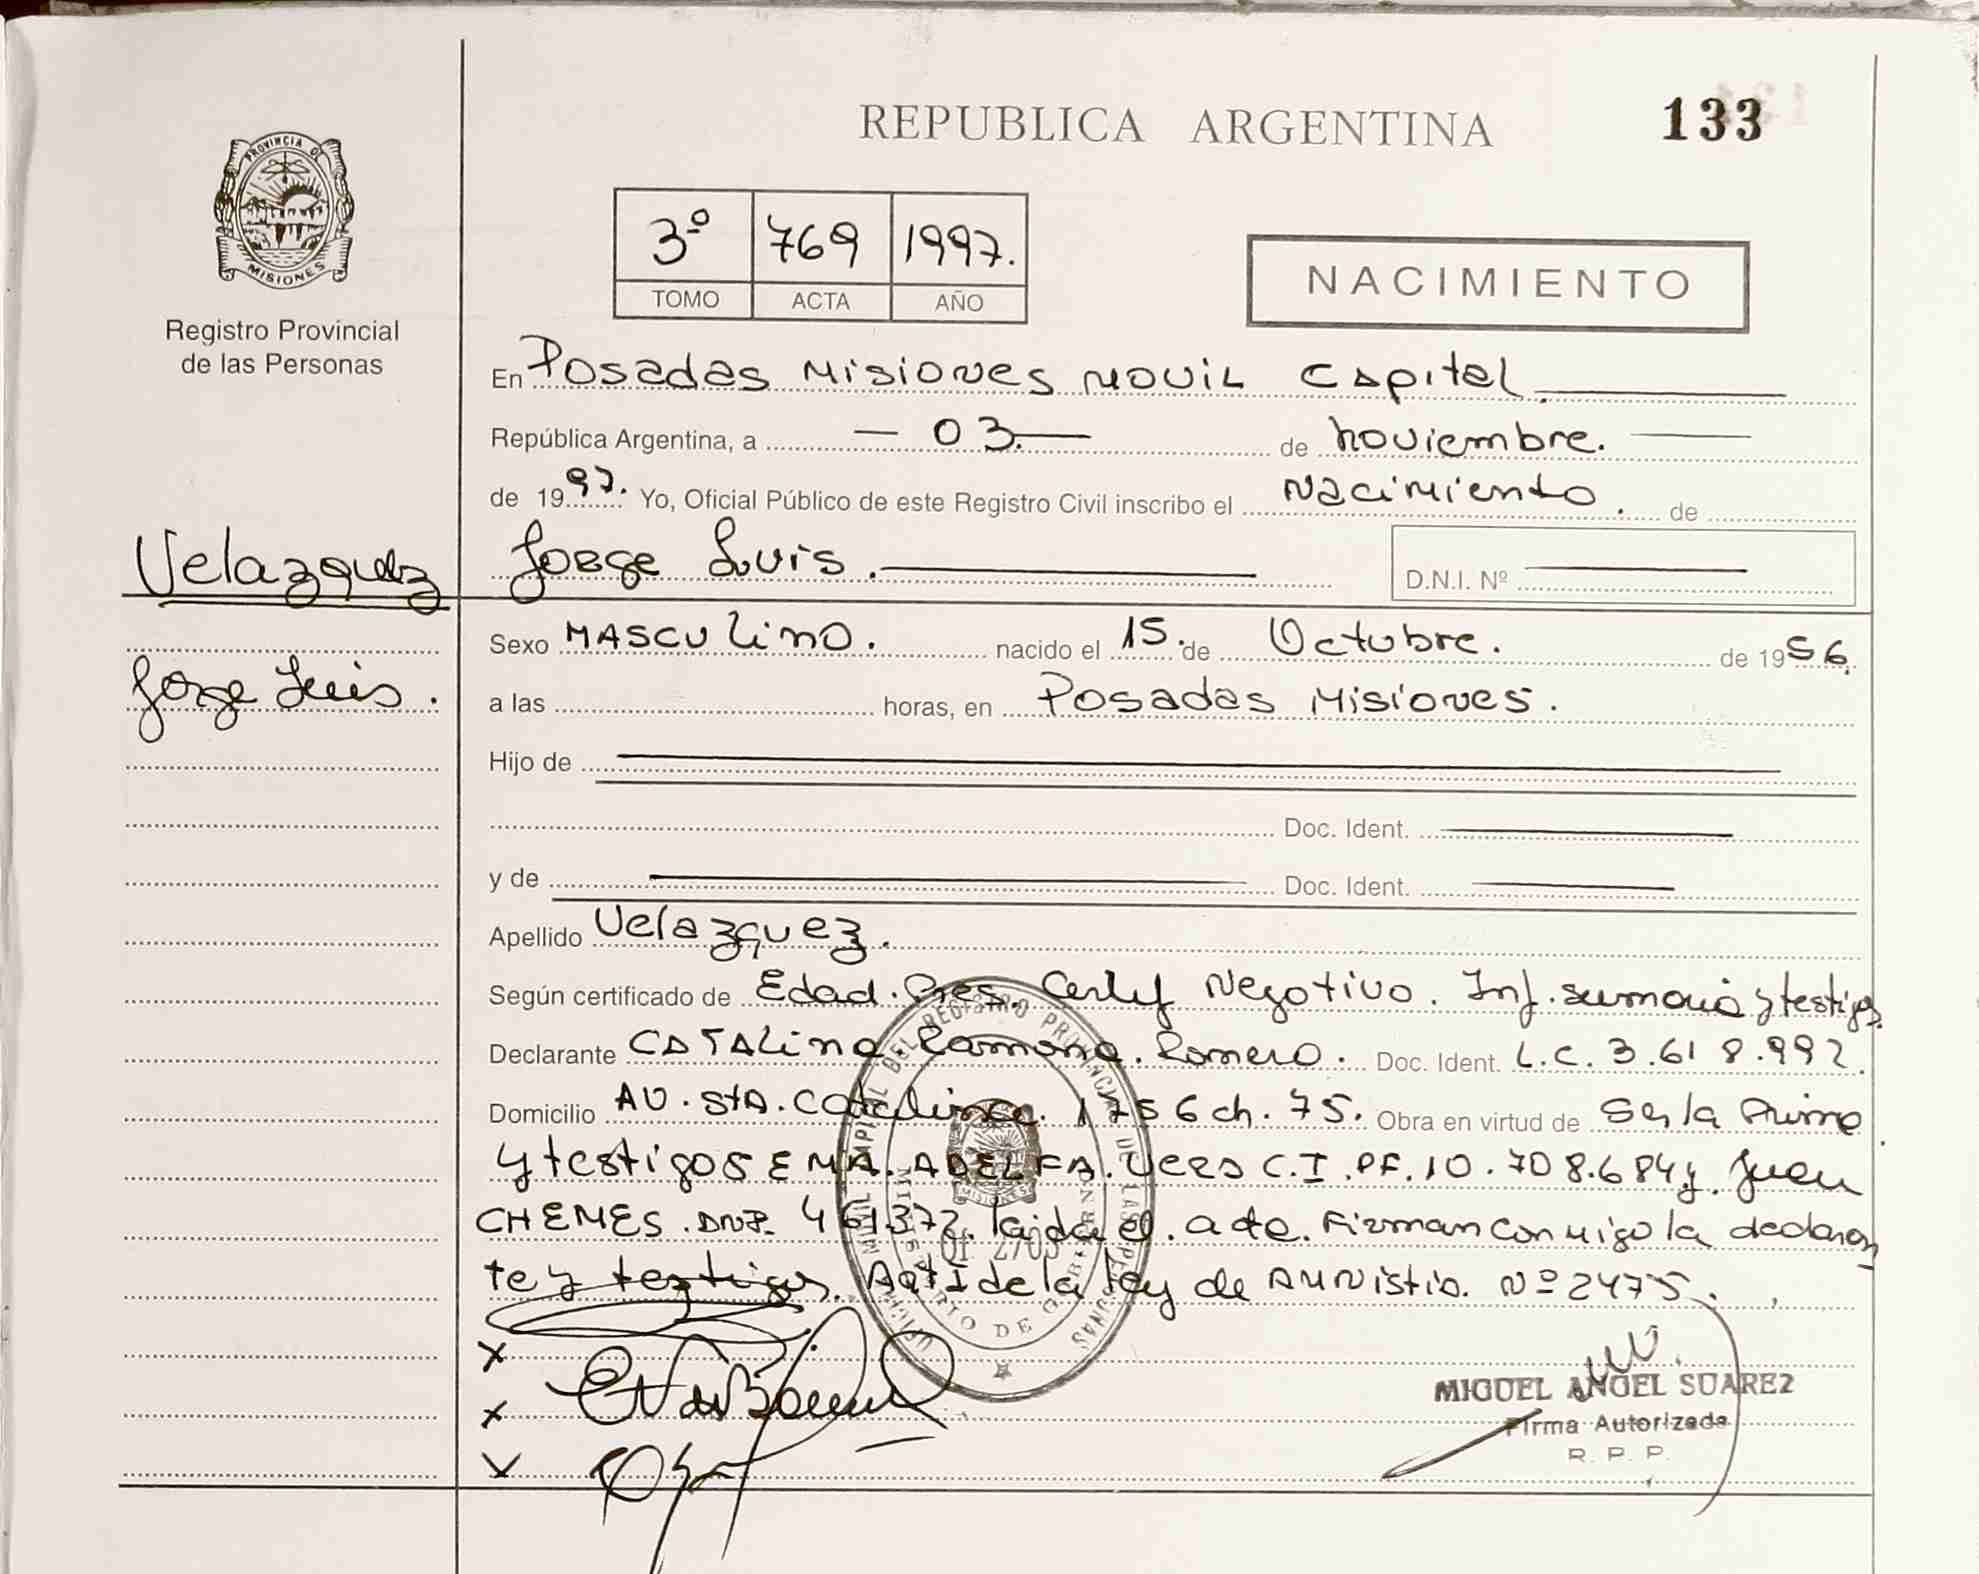 REPUBLICA ARGENTINA
133
PROVINCIA DE
MISIONES
Registro Provincial
de las Personas
3º 769 1997.
TOMO ACTA AÑO
NACIMIENTO
En Posadas Misiones Movil Capital
República Argentina, a 03. de noviembre.
de 1997. Yo, Oficial Público de este Registro Civil inscribo el Nacimiento. de
Velazquez
Jorge Luis.
D.N.I. Nº
Jorge Luis.
Sexo MASCULino. nacido el 15. de Octubre. de 1956.
a las horas, en Posadas Misiones.
Hijo de
Doc. Ident.
y de Doc. Ident.
Apellido Velazquez.
Según certificado de Edad. Pres. Negativo. Inf. sumaria y testigos
Declarante CATALina. Ramona. Romero. Doc. Ident. L.C. 3.618.992.
Domicilio AV. StA. Catalina. 1756 ch. 75. Obra en virtud de Ser la
y testigos EMA. ADELFA. VERA C.I. PF. 10.708.684 y. Juan
CHEMES. 461372. leida el. acta. Firman conmigo la declaran
te y testigos. Art I de la Ley de AMNistia. Nº 2475.
OFICINA MOVIL CAPITAL DEL REGISTRO PROVINCIAL DE LAS PERSONAS
MINISTERIO DE GOBIERNO
MISIONES
MIGUEL ANGEL SUAREZ
Firma Autorizada
R. P. P.